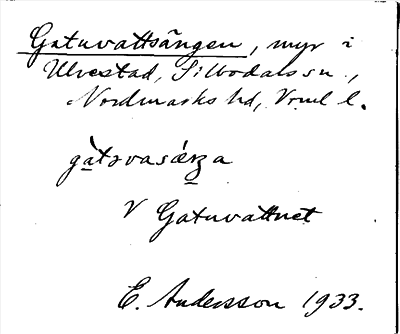 Gatuvattsängen, myr i
Ulvestad, Silbodals sn.,
Nordmarks hd, Vrml l.
gàtǝvasǽŋa
V Gatuvattnet
E. Andersson 1933.